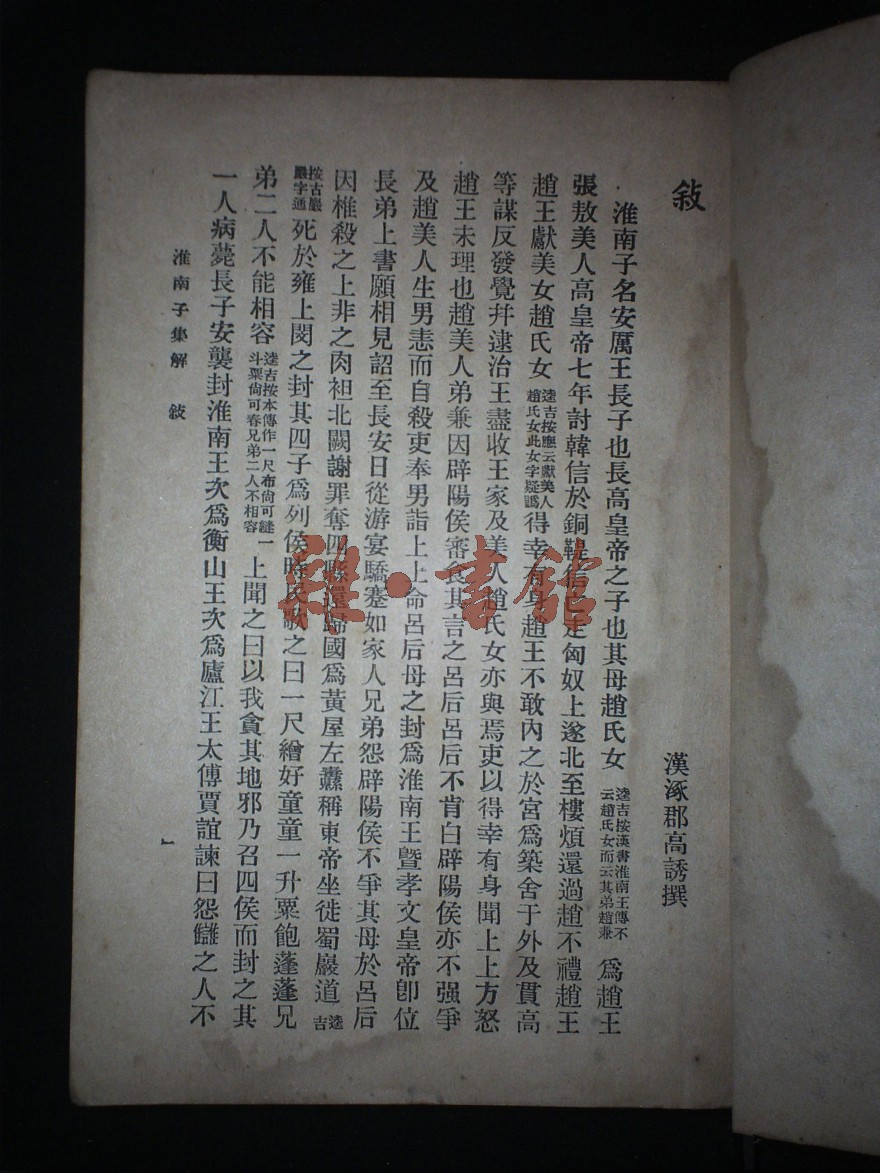 敍
漢涿郡高誘撰
淮南子名安厲王長子也長高皇帝之子也其母趙氏女逵吉按漢書淮南王傳不云趙氏女而云其弟趙兼為趙王
張敖美人高皇帝七年討韓信於銅鞮信亡走匈奴上遂北至樓煩還過趙不禮趙王
趙王獻美女趙氏女逵吉按應云獻美人趙氏女此女字疑譌得幸有身趙王不敢內之於宮為築舍于外及貫高
等謀反發覺幷逮治王盡收王家及美人趙氏女亦與焉吏以得幸有身聞上上方怒
趙王未理也趙美人弟兼因辟陽侯審食其言之呂后呂后不肯白辟陽侯亦不强爭
及趙美人生男恚而自殺吏奉男詣上上命呂后母之封為淮南王暨孝文皇帝卽位
長弟上書願相見詔至長安日從游宴驕蹇如家人兄弟怨辟陽侯不爭其母於呂后
因椎殺之上非之肉袒北闕謝罪奪四縣還歸國為黃屋左纛稱東帝坐徙蜀嚴道逵吉
按古嚴巖字通死於雍上閔之封其四子為列侯時民歌之曰一尺繒好童童一升粟飽蓬蓬兄
弟二人不能相容逵吉按本傳作一尺布尙可縫一斗粟尙可舂兄弟二人不相容上聞之曰以我貪其地邪乃召四侯而封之其
一人病薨長子安襲封淮南王次為衡山王次為廬江王太傅賈誼諫曰怨讎之人不
淮南子集解 敍
一
雜·書館